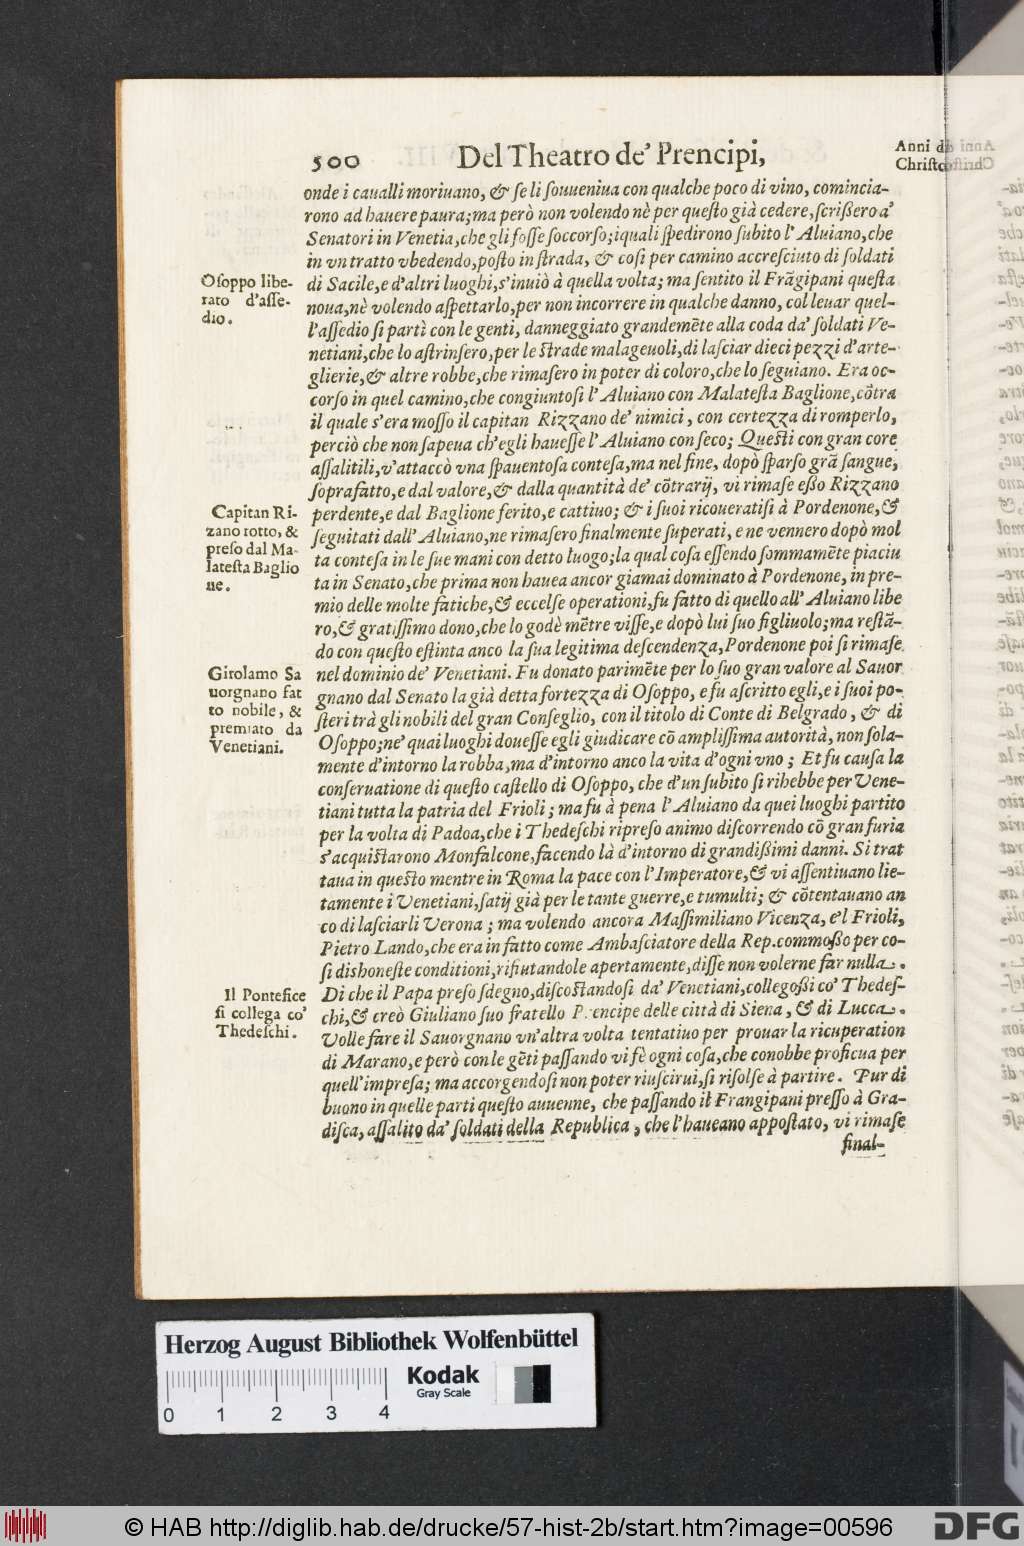 500 Del Theatro de' Prencipi,
Anni di
Christo
onde i caualli moriuano, & ſe li ſouueniua con qualche poco di vino, comincia-
rono ad hauere paura; ma però non volendo nè per queſto già cedere, ſcrißero a'
Senatori in Venetia, che gli foſſe ſoccorſo; iquali ſpedirono ſubito l'Aluiano, che
in vn tratto vbedendo, poſto in ſtrada, & coſi per camino accreſciuto di ſoldati
Oſoppo libe-
rato d'aſſe-
dio.
di Sacile, e d'altri luoghi, s'inuiò à quella volta; ma ſentito il Frãgipani queſta
noua, nè volendo aſpettarlo, per non incorrere in qualche danno, col leuar quel-
l'aſſedio ſi partì con le genti, danneggiato grandemẽte alla coda da' ſoldati Ve-
netiani, che lo aſtrinſero, per le ſtrade malageuoli, di laſciar dieci pezzi d'arte-
glierie, & altre robbe, che rimaſero in poter di coloro, che lo ſeguiano. Era oc-
corſo in quel camino, che congiuntoſi l'Aluiano con Malateſta Baglione, cõtra
il quale s'era moſſo il capitan Rizzano de' nimici, con certezza di romperlo,
perciò che non ſapeua ch'egli haueſſe l'Aluiano con ſeco; Queſti con gran core
aſſalitili, v'attaccò vna ſpauentoſa conteſa, ma nel fine, dopò ſparſo grã ſangue,
ſoprafatto, e dal valore, & dalla quantità de' cõtrarij, vi rimaſe eßo Rizzano
Capitan Ri-
zano rotto, &
preſo dal Ma-
lateſta Baglio
ne.
perdente, e dal Baglione ferito, e cattiuo; & i ſuoi ricoueratiſi à Pordenone, &
ſeguitati dall'Aluiano, ne rimaſero finalmente ſuperati, e ne vennero dopò mol
ta conteſa in le ſue mani con detto luogo; la qual coſa eſſendo ſommamẽte piaciu
ta in Senato, che prima non hauea ancor giamai dominato à Pordenone, in pre-
mio delle molte fatiche, & eccelſe operationi, fu fatto di quello all'Aluiano libe
ro, & gratiſſimo dono, che lo godè mẽtre viſſe, e dopò lui ſuo figliuolo; ma reſtã-
do con queſto eſtinta anco la ſua legitima deſcendenza, Pordenone poi ſi rimaſe
Girolamo Sa
uorgnano fat
to nobile, &
premiato da
Venetiani.
nel dominio de' Venetiani. Fu donato parimẽte per lo ſuo gran valore al Sauor
gnano dal Senato la già detta fortezza di Oſoppo, e fu aſcritto egli, e i ſuoi po-
ſteri trà gli nobili del gran Conſeglio, con il titolo di Conte di Belgrado, & di
Oſoppo; ne' quai luoghi doueſſe egli giudicare cõ ampliſſima autorità, non ſola-
mente d'intorno la robba, ma d'intorno anco la vita d'ogni vno; Et fu cauſa la
conſeruatione di queſto caſtello di Oſoppo, che d'un ſubito ſi rihebbe per Vene-
tiani tutta la patria del Frioli; ma fu à pena l'Aluiano da quei luoghi partito
per la volta di Padoa, che i Thedeſchi ripreſo animo diſcorrendo cõ gran furia
s'acquiſtarono Monfalcone, facendo là d'intorno di grandißimi danni. Si trat
taua in queſto mentre in Roma la pace con l'Imperatore, & vi aſſentiuano lie-
tamente i Venetiani, ſatij già per le tante guerre, e tumulti; & cõtentauano an
co di laſciarli Verona; ma volendo ancora Maſſimiliano Vicenza, e'l Frioli,
Pietro Lando, che era in fatto come Ambaſciatore della Rep. commoßo per co-
ſi dishoneſte conditioni, rifiutandole apertamente, diſſe non volerne far nulla.
Il Pontefice
ſi collega co'
Thedeſchi.
Di che il Papa preſo ſdegno, diſcoſtandoſi da' Venetiani, collegoßi co' Thedeſ-
chi, & creò Giuliano ſuo fratello Prencipe delle città di Siena, & di Lucca.
Volle fare il Sauorgnano vn'altra volta tentatiuo per prouar la ricuperation
di Marano, e però con le gẽti paſſando vi fè ogni coſa, che conobbe proficua per
quell'impreſa; ma accorgendoſi non poter riuſcirui, ſi riſolſe à partire. Pur di
buono in quelle parti queſto auuenne, che paſſando il Frangipani preſſo à Gra-
diſca, aſſalito da' ſoldati della Republica, che l'haueano appoſtato, vi rimaſe
final-
Herzog August Bibliothek Wolfenbüttel
Kodak
Gray Scale
0 1 2 3 4
© HAB http://diglib.hab.de/drucke/57-hist-2b/start.htm?image=00596
DFG